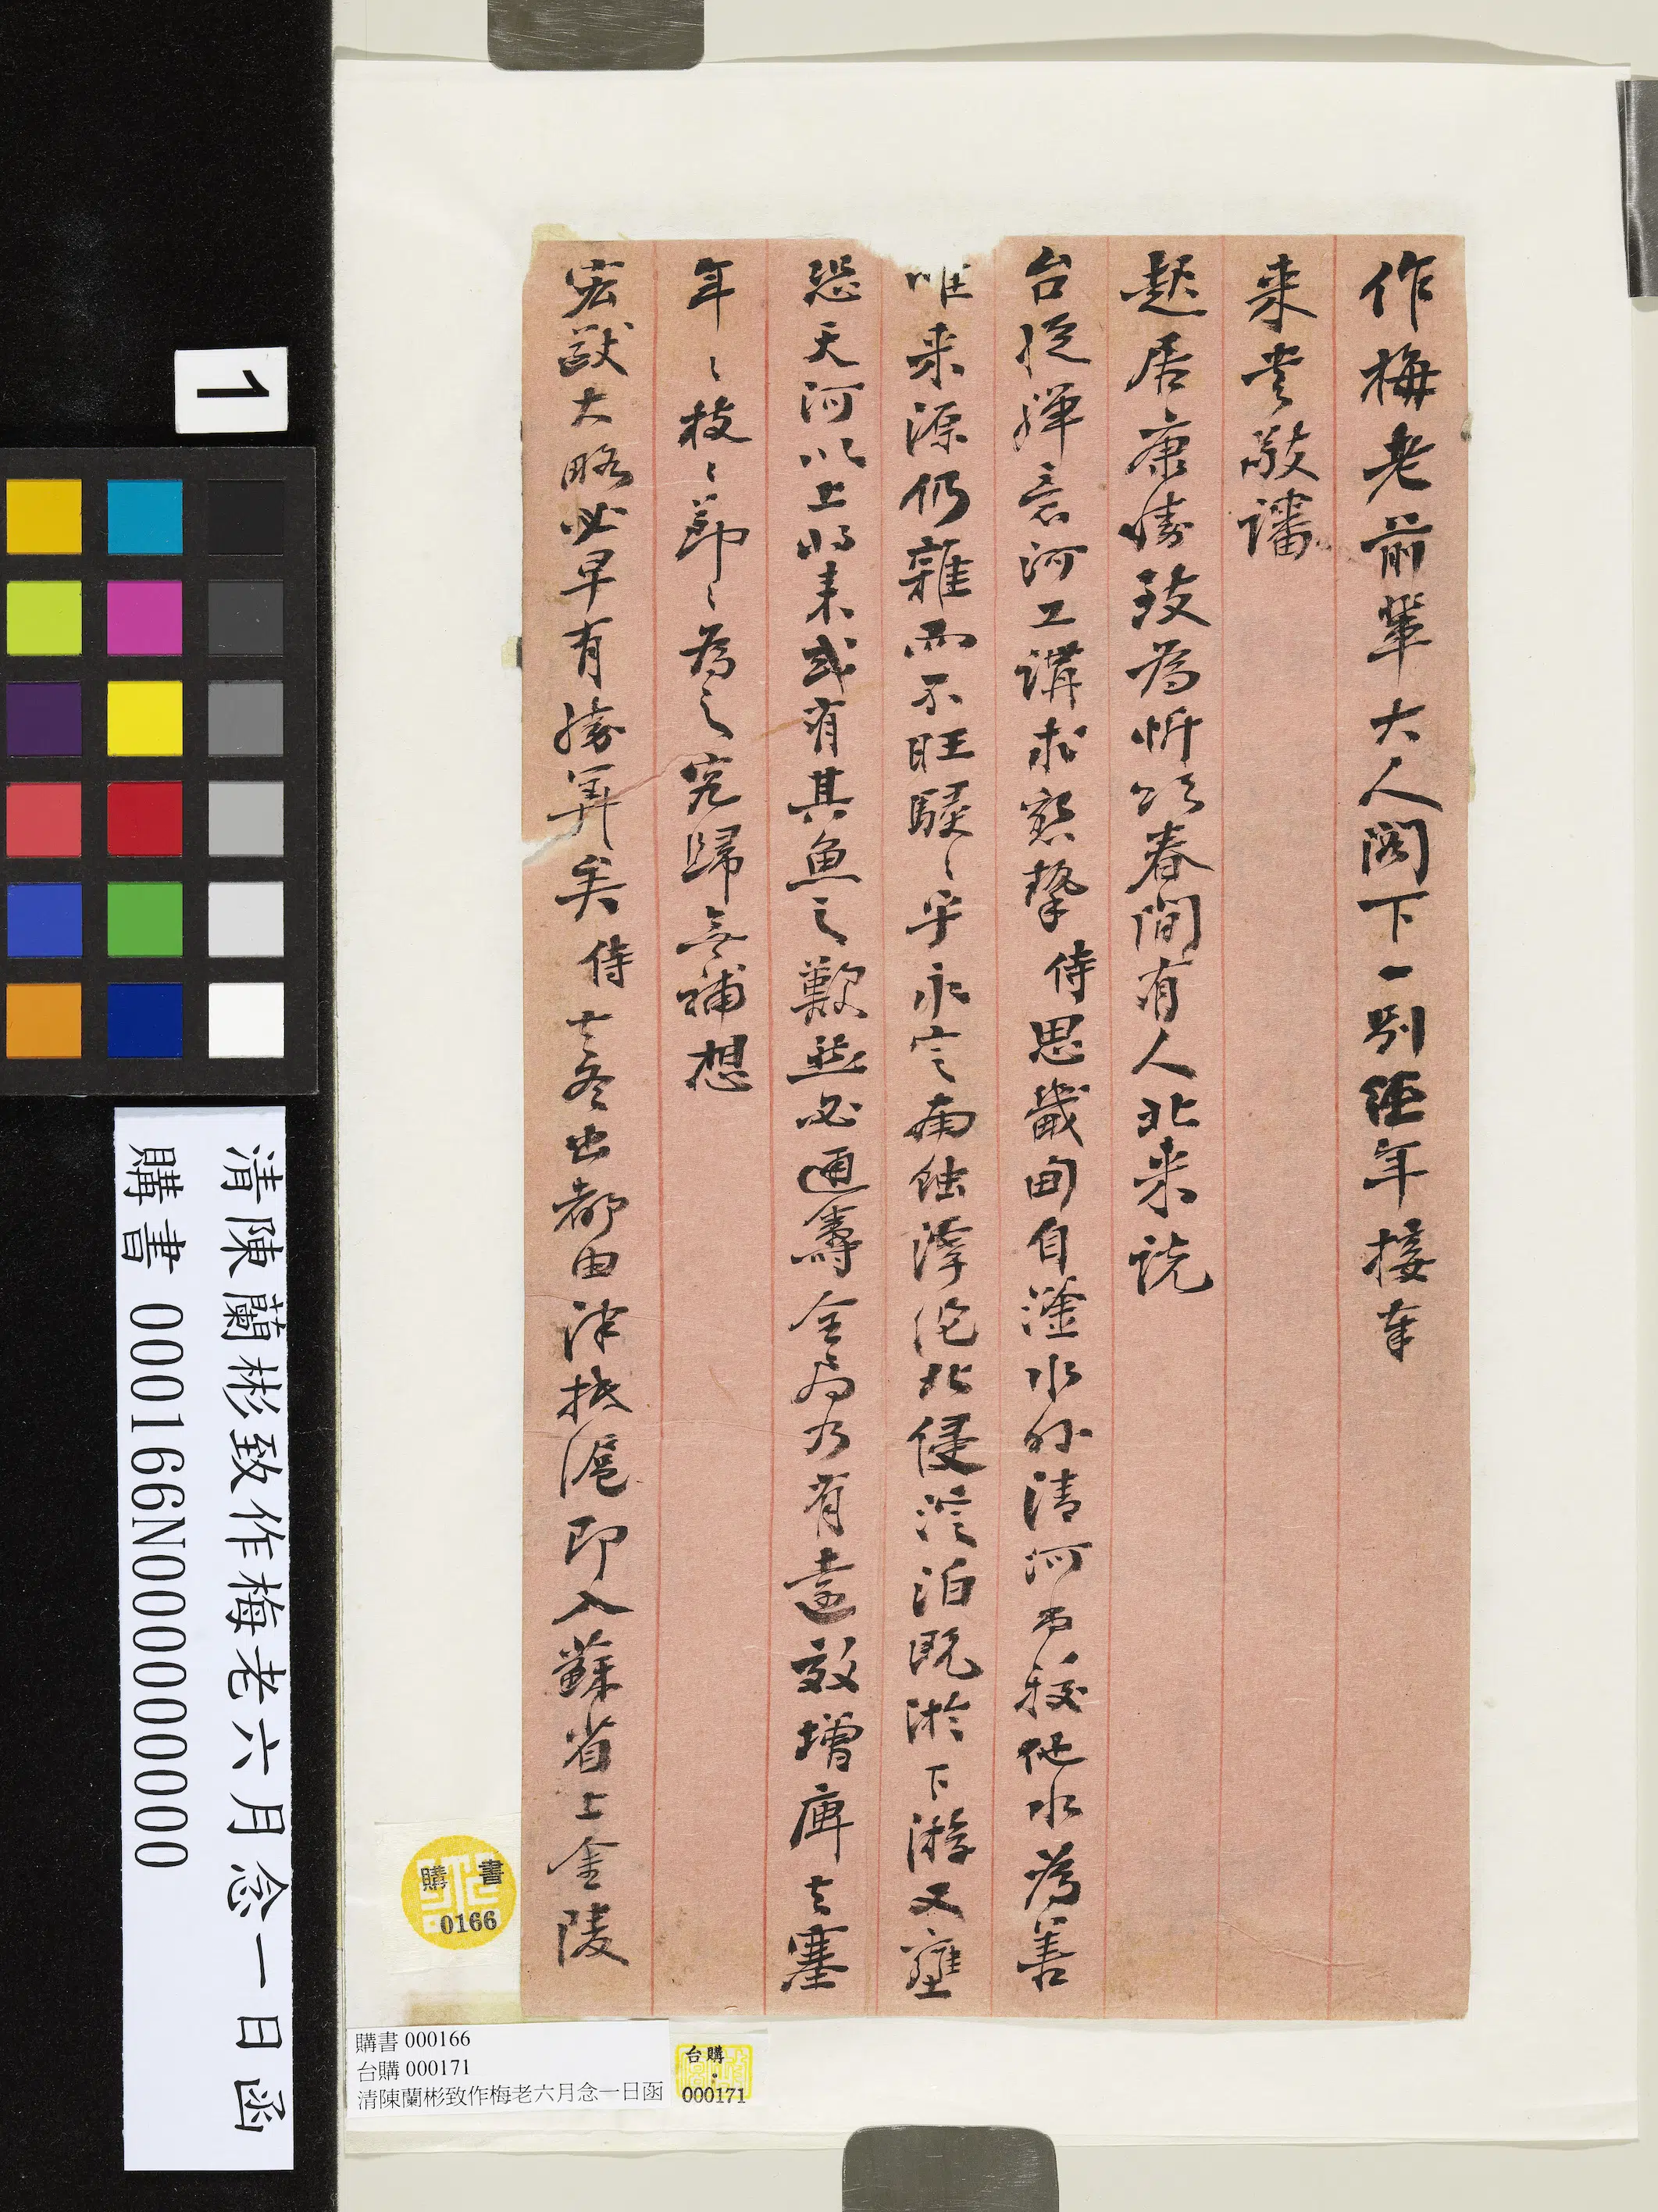 作梅老前輩大人閣下一別經年接奉
來書敬讅
起居康勝致為忻頌春間有人北來說
台從殫意河工講求懇摯侍思畿甸自滏水外清河再發他水為善
唯來源仍雜而不旺駸〻乎永定南蝕滹沱北侵淀泊既淤下游又壅
恐天河以上將來或有其魚之歎茲必通籌全局乃有遠效增庳去塞
年〻枝〻節〻為之究歸無補想
宏猷大略必早有勝算矣侍去冬出都由津抵滬即入蘇省上金陵
1
清陳蘭彬致作梅老六月念一日函
購書 000166N000000000
購書
0166
購書 000166
台購 000171
清陳蘭彬致作梅老六月念一日函
台購
000171